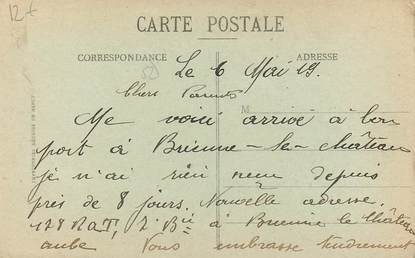 12+
CARTE POSTALE
CORRESPONDANCE
ADRESSE
Le 6 Mai 19.
Chers Parents
M
Me voici arrivé à bon
port à Brienne-le-château
je n'ai rien reçu depuis
près de 8 jours. Nouvelle adresse.
à Brienne le Château
aube Vous embrasse tendrement